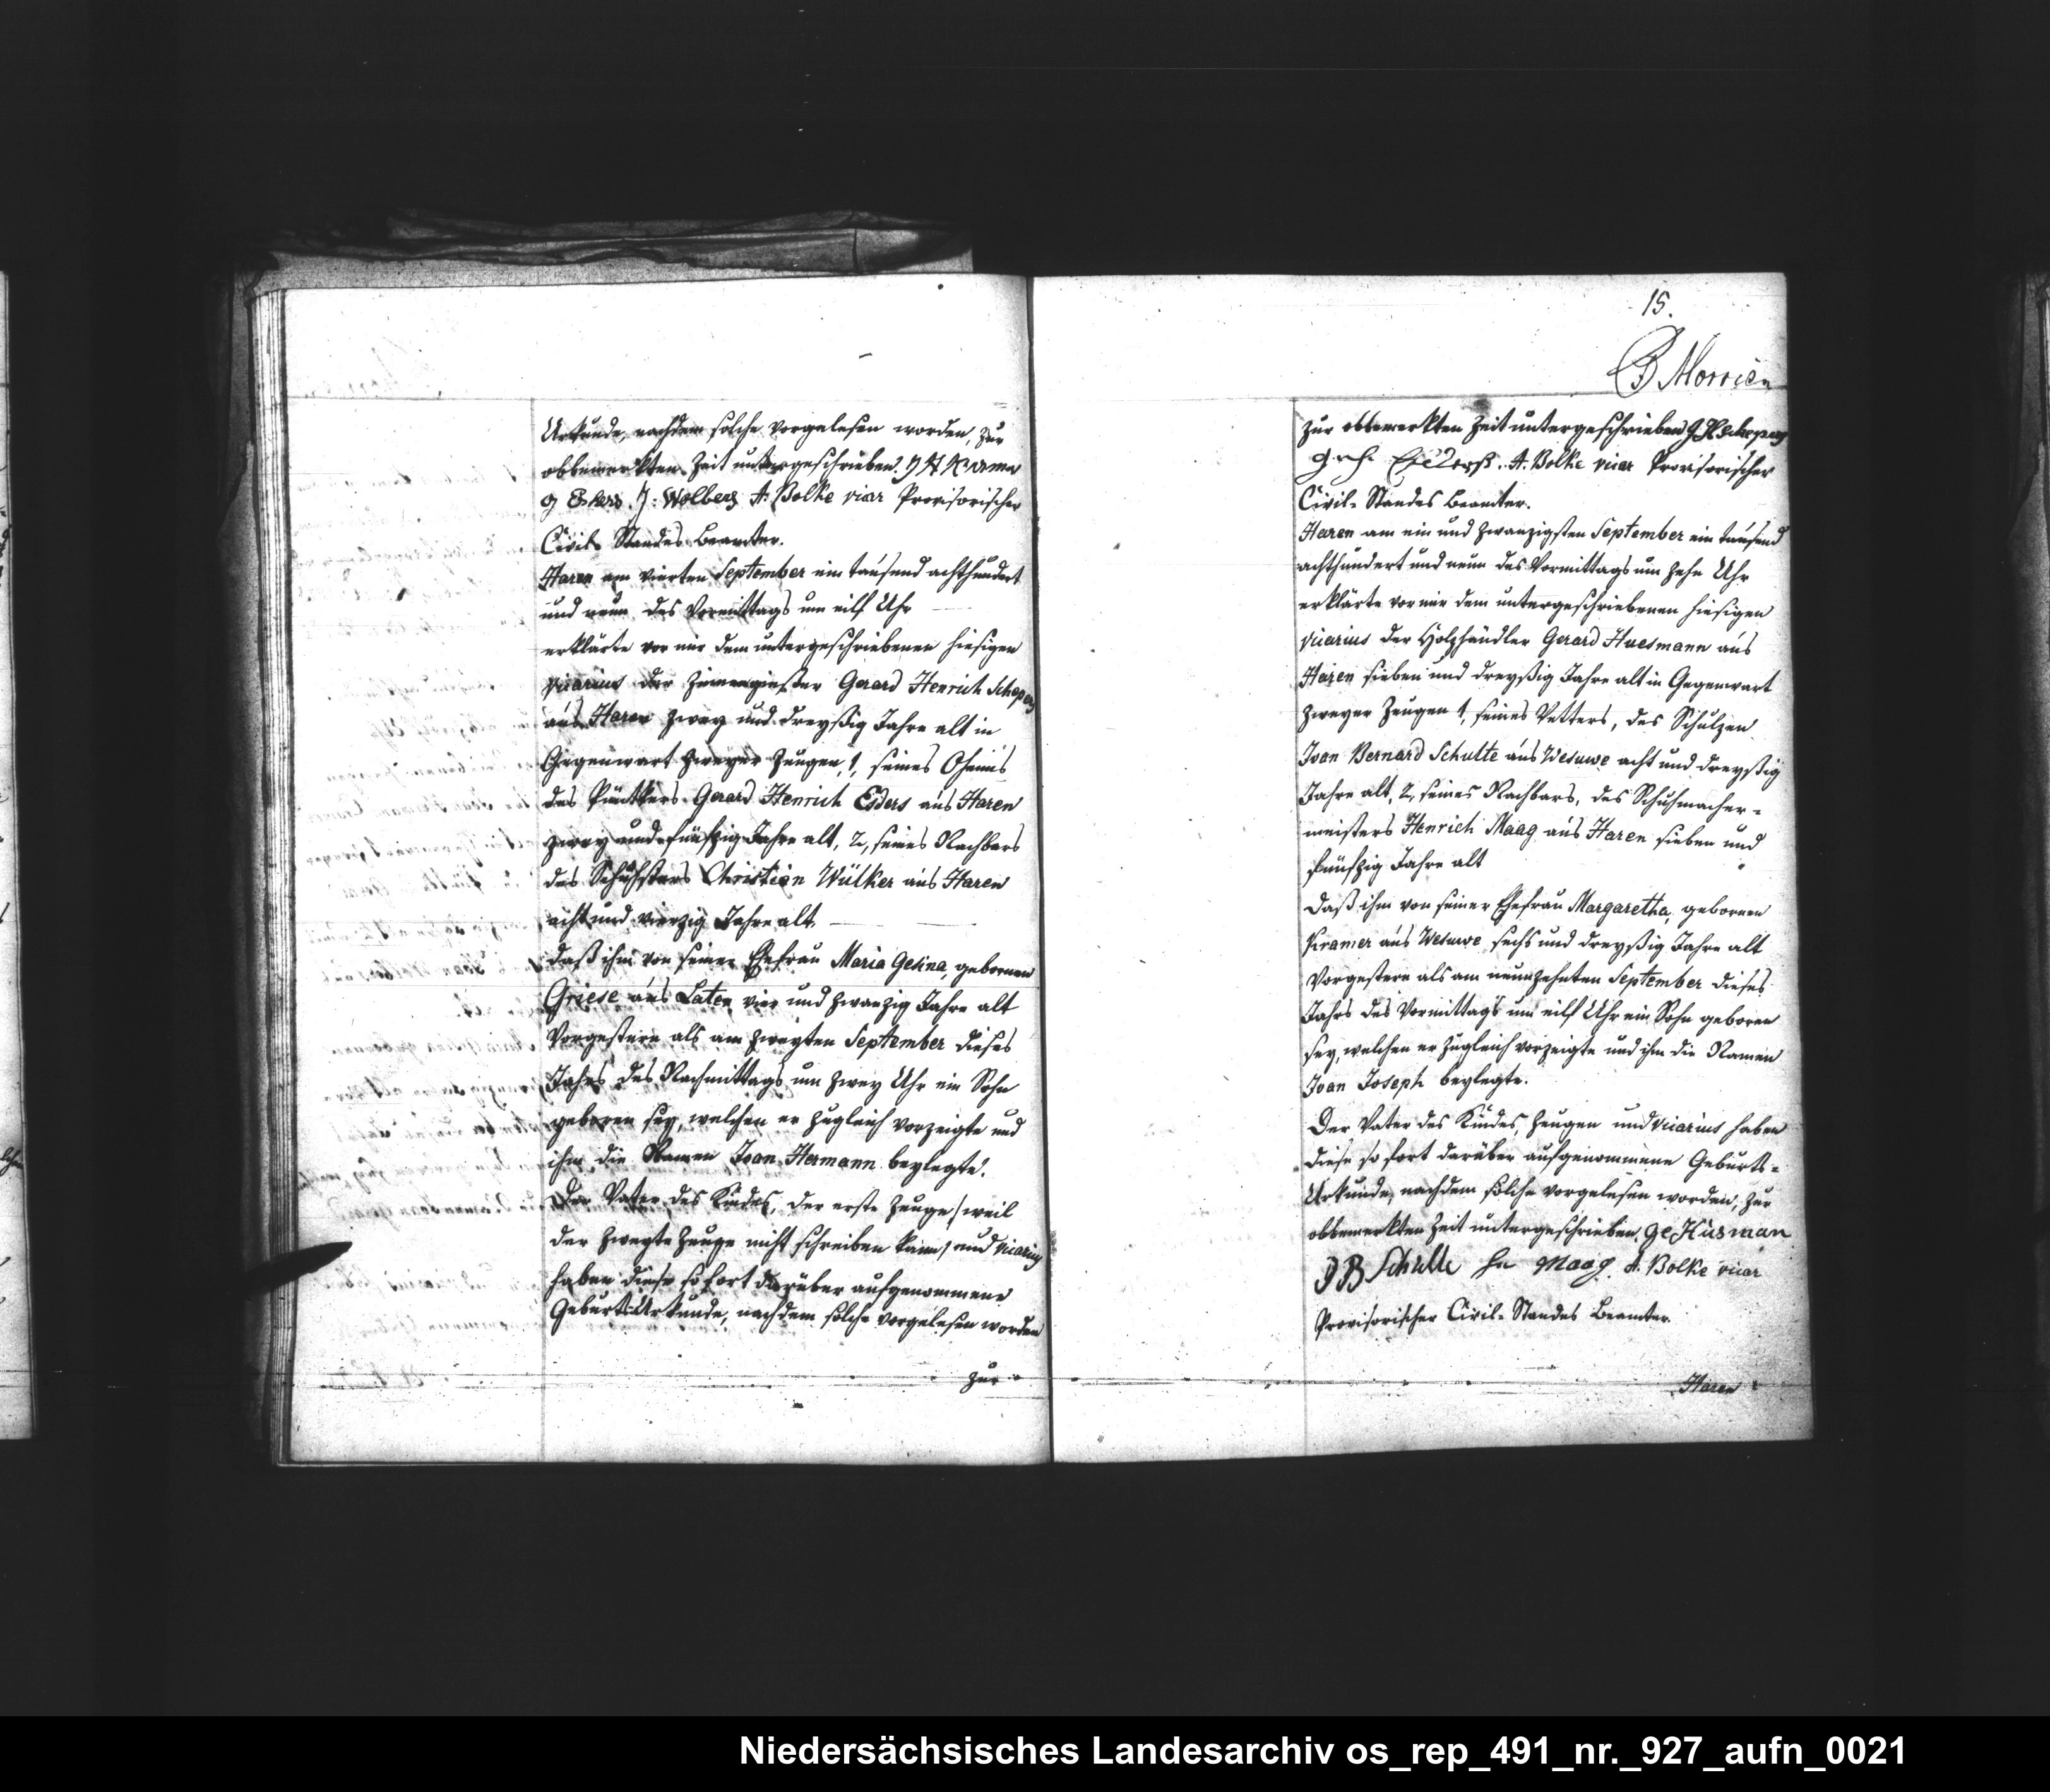 Urkunde, nachdem solche vorgelesen worden, zur
obbemerkten Zeit untergeschrieben.
J. Wolbers A. Bolke vicar Provisorischer
Civil-Standes Beamter.
Haren am vierten September ein tausend achthundert
und neun des Vormittags um eilf Uhr
erklärte vor mir dem untergeschriebenen hiesigen
vicarius der Gerard Henrich Schepers
aus Haren zwey und dreyßig Jahre alt in
Gegenwart zweyer Zeugen, 1, seines Oheims
des Gerard Henrich Esders aus Haren
zwey und fünfzig Jahre alt, 2, seines Nachbars
des Schusters Christian Wülker aus Haren
acht und vierzig Jahre alt.
daß ihm von seiner Ehefrau Maria Gesina, gebornen
Griese aus Laten vier und zwanzig Jahre alt
Vorgestern als am zweyten September dieses
Jahrs des Nachmittags um zwey Uhr ein Sohn
geboren sey, welchen er zugleich vorzeigte und
ihm die Namen Joan Hermann beylegte.
Der Vater des Kindes, der erste Zeuge /weil
der zweyte Zeuge nicht schreiben kann/ und vicarius
haben diese so fort darüber aufgenommene
Geburts Urkunde, nachdem solche vorgelesen worden
zur
15.
Morrien
zur obbemerkten Zeit untergeschrieben G H Schepers
A. Bolke vicar Provisorischer
Civil-Standes Beamter.
Haren am ein und zwanzigsten September ein tausend
achthundert und neun des Vormittags um zehn Uhr
erklärte vor mir dem untergeschriebenen hiesigen
vicarius der Holzhändler Gerard Huesmann aus
Haren sieben und dreyßig Jahre alt in Gegenwart
zweyer Zeugen 1, seines Vetters, des Schulzen
Joan Bernard Schulte aus Wesuwe acht und dreyßig
Jahre alt, 2, seines Nachbars, des Schuhmacher-
meisters Henrich Maag aus Haren sieben und
fünfzig Jahre alt
daß ihm von seiner Ehefrau Margaretha, gebornen
Kramer aus Wesuwe sechs und dreyßig Jahre alt
Vorgestern als am neunzehnten September dieses
Jahrs des Vormittags um eilf Uhr ein Sohn geboren
sey, welchen er zugleich vorzeigte und ihm die Namen
Joan Joseph beylegte.
Der Vater des Kindes, Zeugen und vicarius haben
diese so fort darüber aufgenommene Geburts-
Urkunde, nachdem solche vorgelesen worden, zur
obbemerkten Zeit untergeschrieben. Ge Hüsman
J B Schulte Hn Maag. A. Bolke vicar
Provisorischer Civil-Standes Beamter.
Haren
Niedersächsisches Landesarchiv os_rep_491_nr._927_aufn_0021